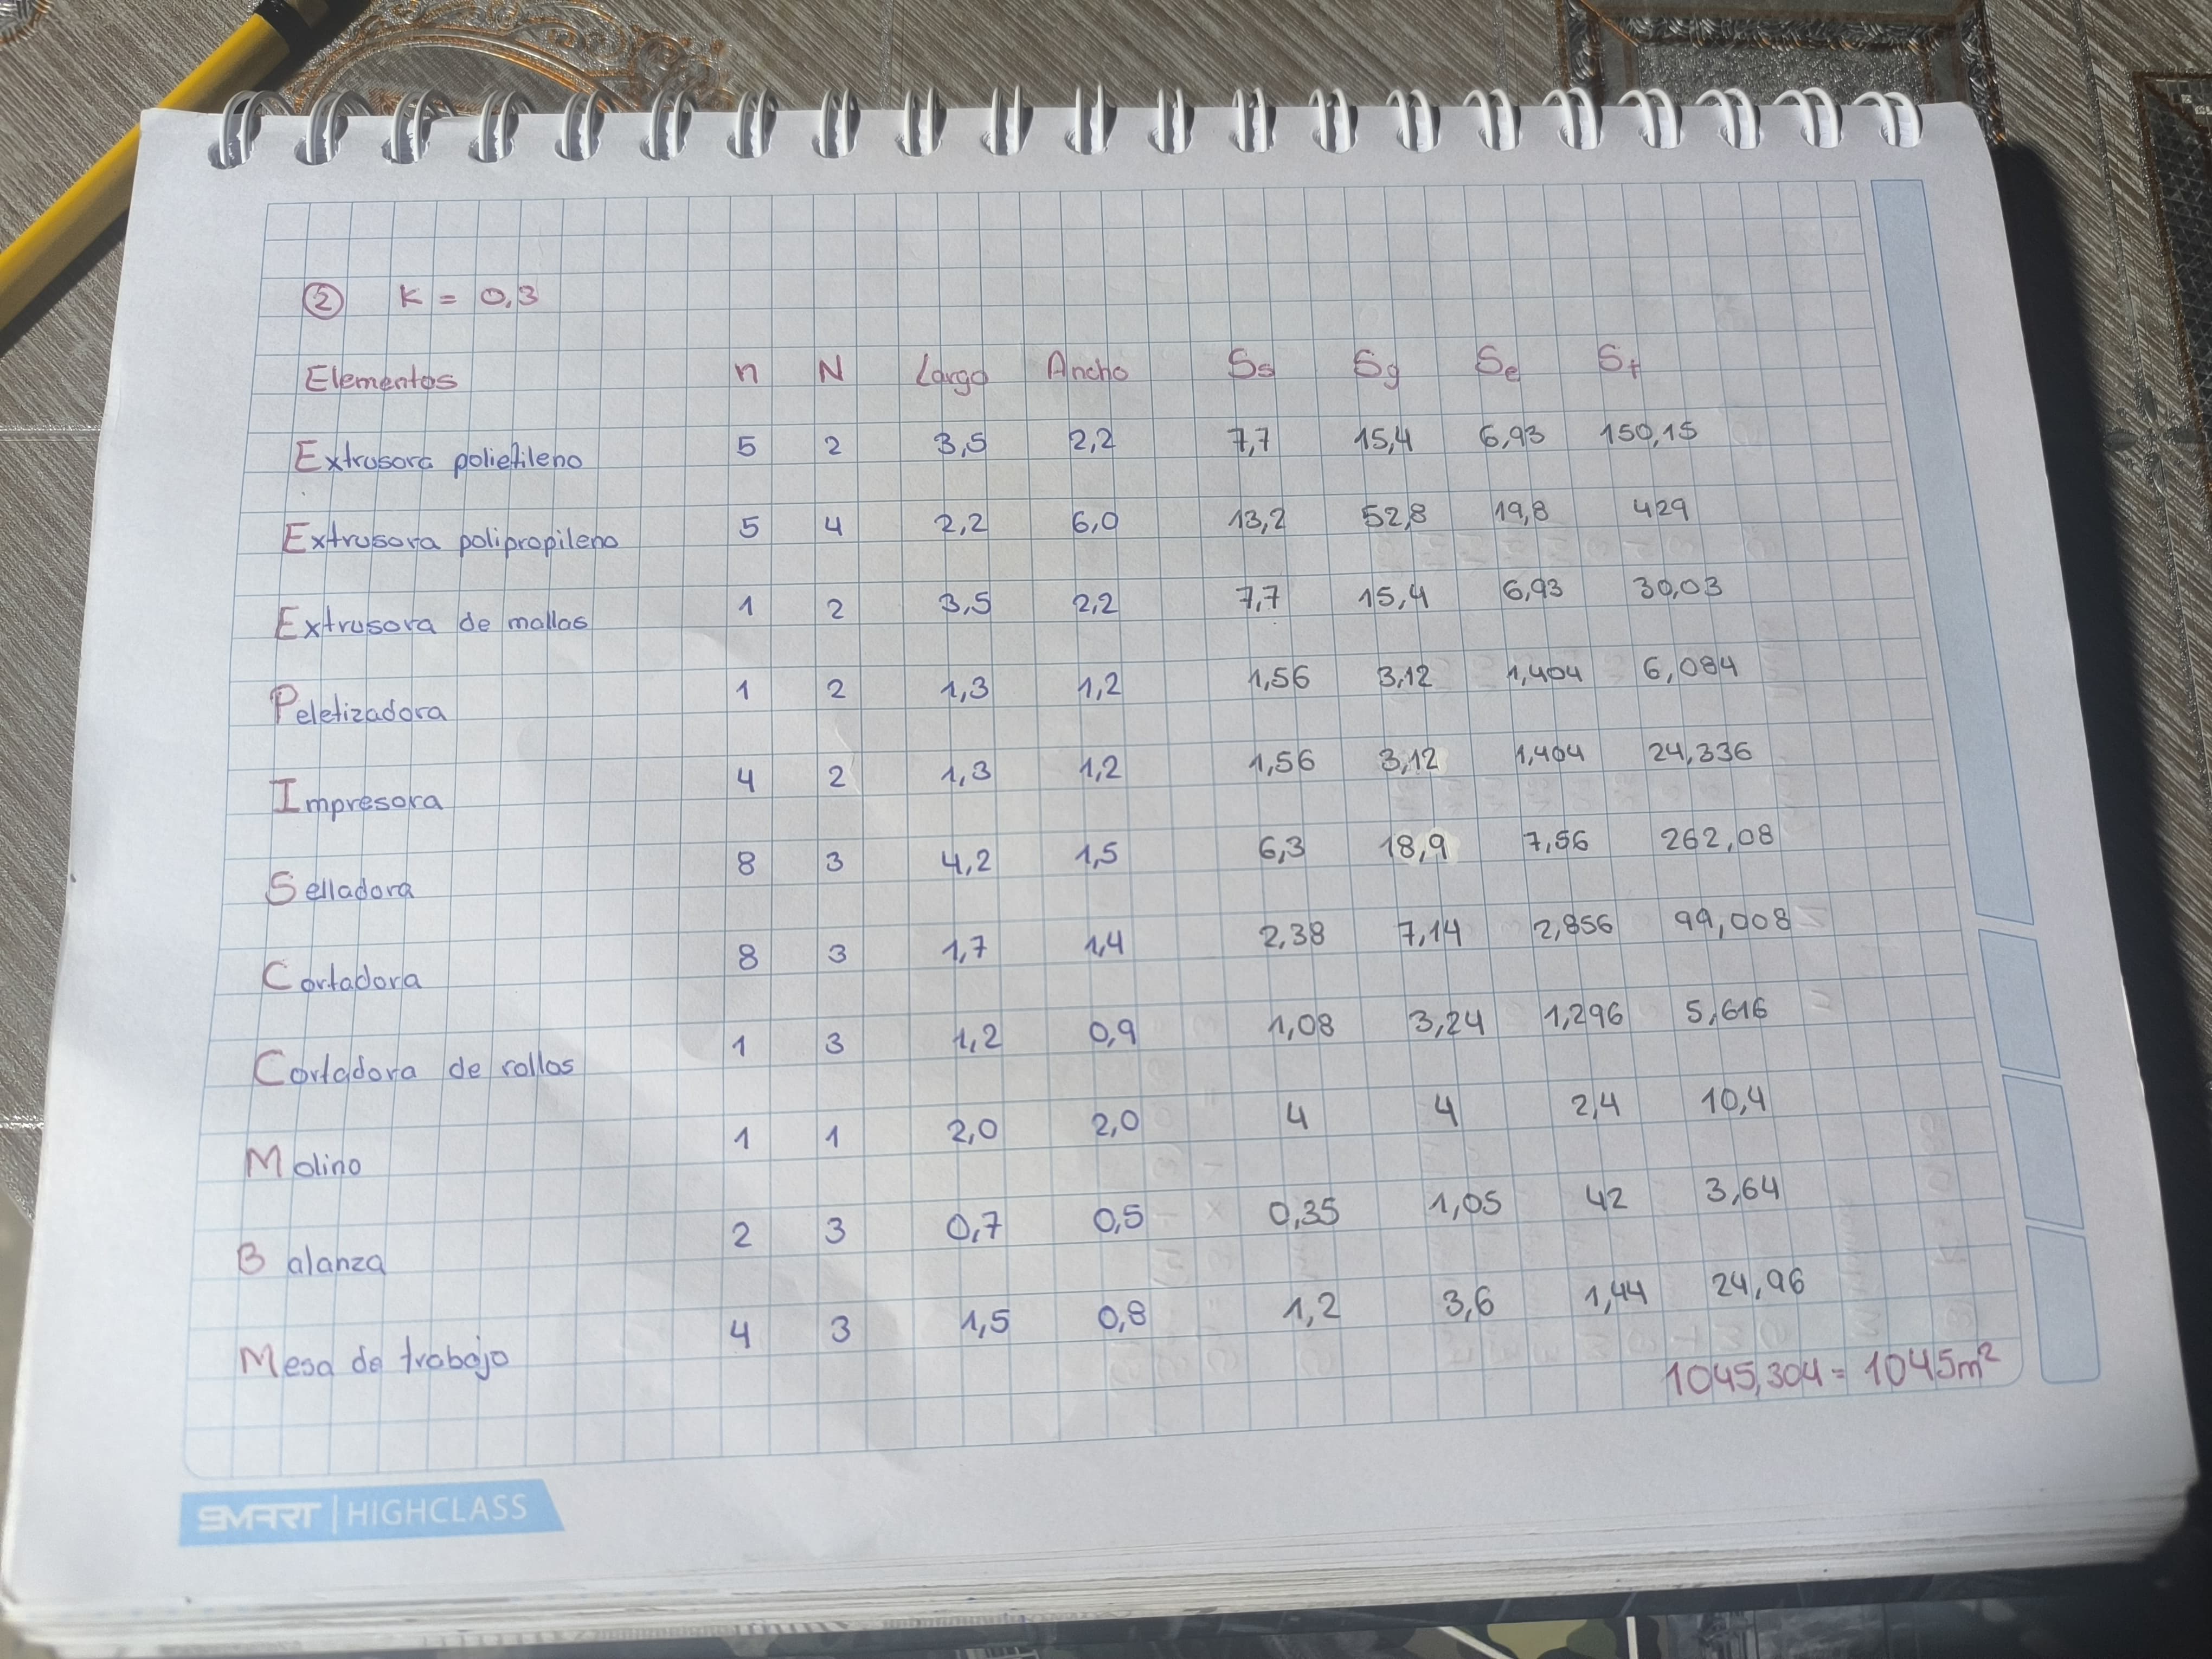 ② K = 0,3
Elementos n N Largo Ancho Ss Sg Se St
Extrusora polietileno 5 2 3,5 2,2 7,7 15,4 6,93 150,15
Extrusora polipropileno 5 4 2,2 6,0 13,2 52,8 19,8 429
Extrusora de mallas 1 2 3,5 2,2 7,7 15,4 6,93 30,03
Peletizadora 1 2 1,3 1,2 1,56 3,12 1,404 6,084
Impresora 4 2 1,3 1,2 1,56 3,12 1,404 24,336
Selladora 8 3 4,2 1,5 6,3 18,9 7,56 262,08
Cortadora 8 3 1,7 1,4 2,38 7,14 2,856 99,008
Cortadora de rollos 1 3 1,2 0,9 1,08 3,24 1,296 5,616
Molino 1 1 2,0 2,0 4 4 2,4 10,4
Balanza 2 3 0,7 0,5 0,35 1,05 42 3,64
Mesa de trabajo 4 3 1,5 0,8 1,2 3,6 1,44 24,96
1045,304 = 1045m²
SMART | HIGHCLASS